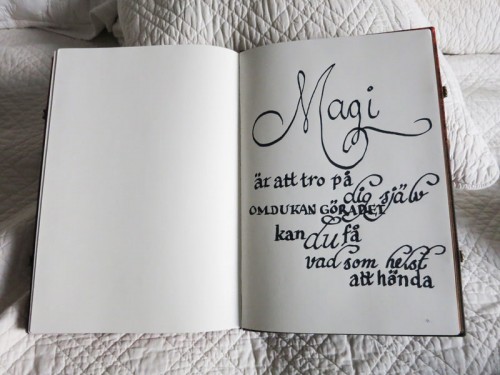 Magi
är att tro på
dig själv
OM DU KAN GÖRA DET
kan du få
vad som helst
att hända